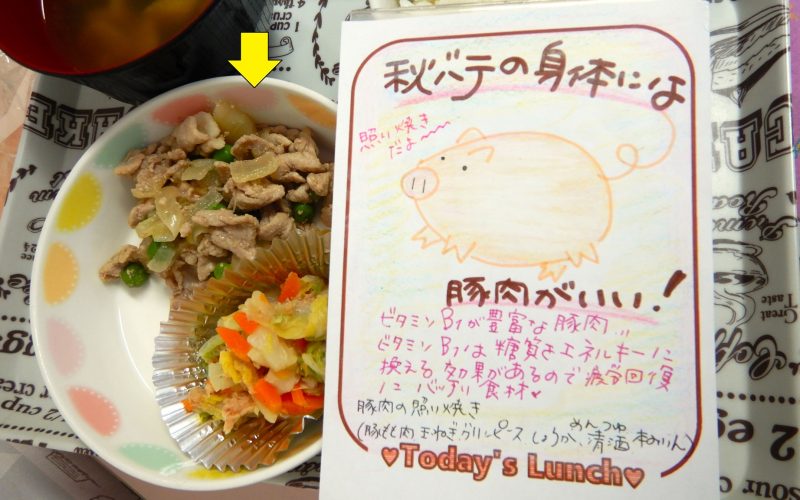 秋バテの身体には
照り焼き
だよ〜〜
豚肉がいい!
ビタミンB1が豊富な豚肉...
ビタミンB1は糖質をエネルギーに
換える効果があるので疲労回復
にバッチリ食材♥
豚肉の照り焼き
(豚もも肉 玉ねぎ グリンピース しょうが、めんつゆ 清酒 本みりん)
♥Today's Lunch♥
Great
Taste